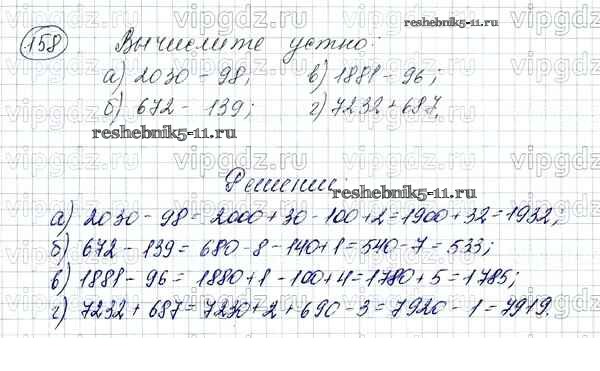 158 Вычислите устно:
а) 2030 - 98; в) 1881 - 96;
б) 672 - 139; г) 7232 + 687.
Решении:
а) 2030 - 98 = 2000 + 30 - 100 + 2 = 1900 + 32 = 1932;
б) 672 - 139 = 680 - 8 - 140 + 1 = 540 - 7 = 533;
в) 1881 - 96 = 1880 + 1 - 100 + 4 = 1780 + 5 = 1785;
г) 7232 + 687 = 7230 + 2 + 690 - 3 = 7920 - 1 = 7919.
vipgdz.com
reshebnik5-11.ru
reshebnik5-11.ru
reshebnik5-11.ru